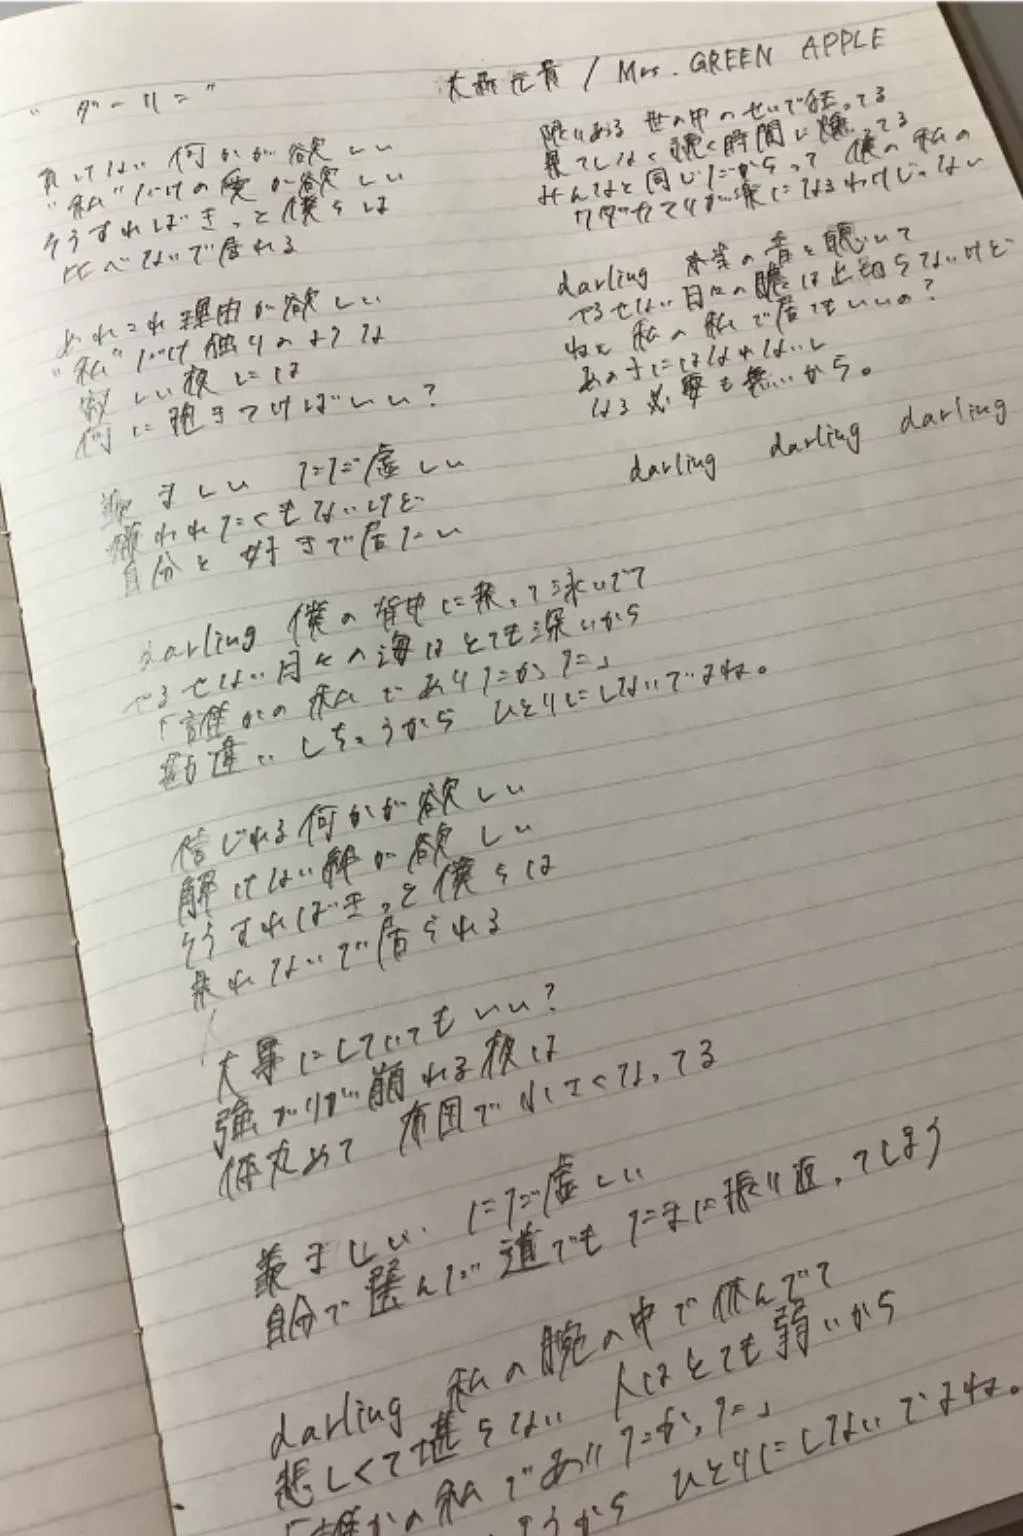 "ダーリン"
大森元貴 / Mrs. GREEN APPLE
負けない何かが欲しい
"私"だけの愛が欲しい
そうすればきっと僕らは
比べないで居れる
あれこれ理由が欲しい
"私"だけ独りのような
寂しい夜には
何に抱きつけばいい?
羨ましい ただ虚しい
嫌われたくもないけど
自分を好きで居たい
darling 僕の背中に乗って泳いでて
やるせない日々の海はとても深いから
「誰かの私でありたかった」
勘違いしちゃうから ひとりにしないでよね。
信じれる何かが欲しい
解けない絆が欲しい
そうすればきっと僕らは
乗れないで居られる
大事にしていてもいい?
強がりが崩れる夜は
体丸めて 布団で小さくなってる
羨ましい ただ虚しい
自分で選んだ道でもたまに振り返ってしまう
darling 私の腕の中で休んでて
悲しくて堪らない 人はとても弱いから
「誰かの私でありたかった」
うから ひとりにしないでよね。
限りある 世の中のせいで狂ってる
果てしなく続く時間に燻ってる
みんなと同じだからって 僕の私の
ワダカマリが楽になるわけじゃない
darling 本当の音を聴いて
やるせない日々の膿は出切らないけど
ねえ 私の私で居てもいいの?
あの子にはなれないし
なる必要も無いから。
darling darling darling